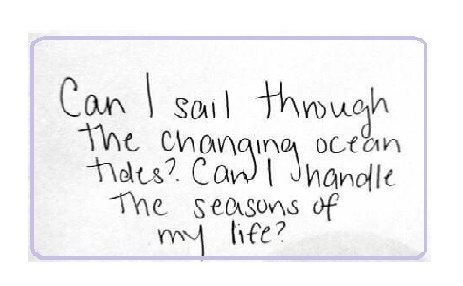 Can I sail through
the changing ocean
tides? Can I handle
the seasons of
my life?